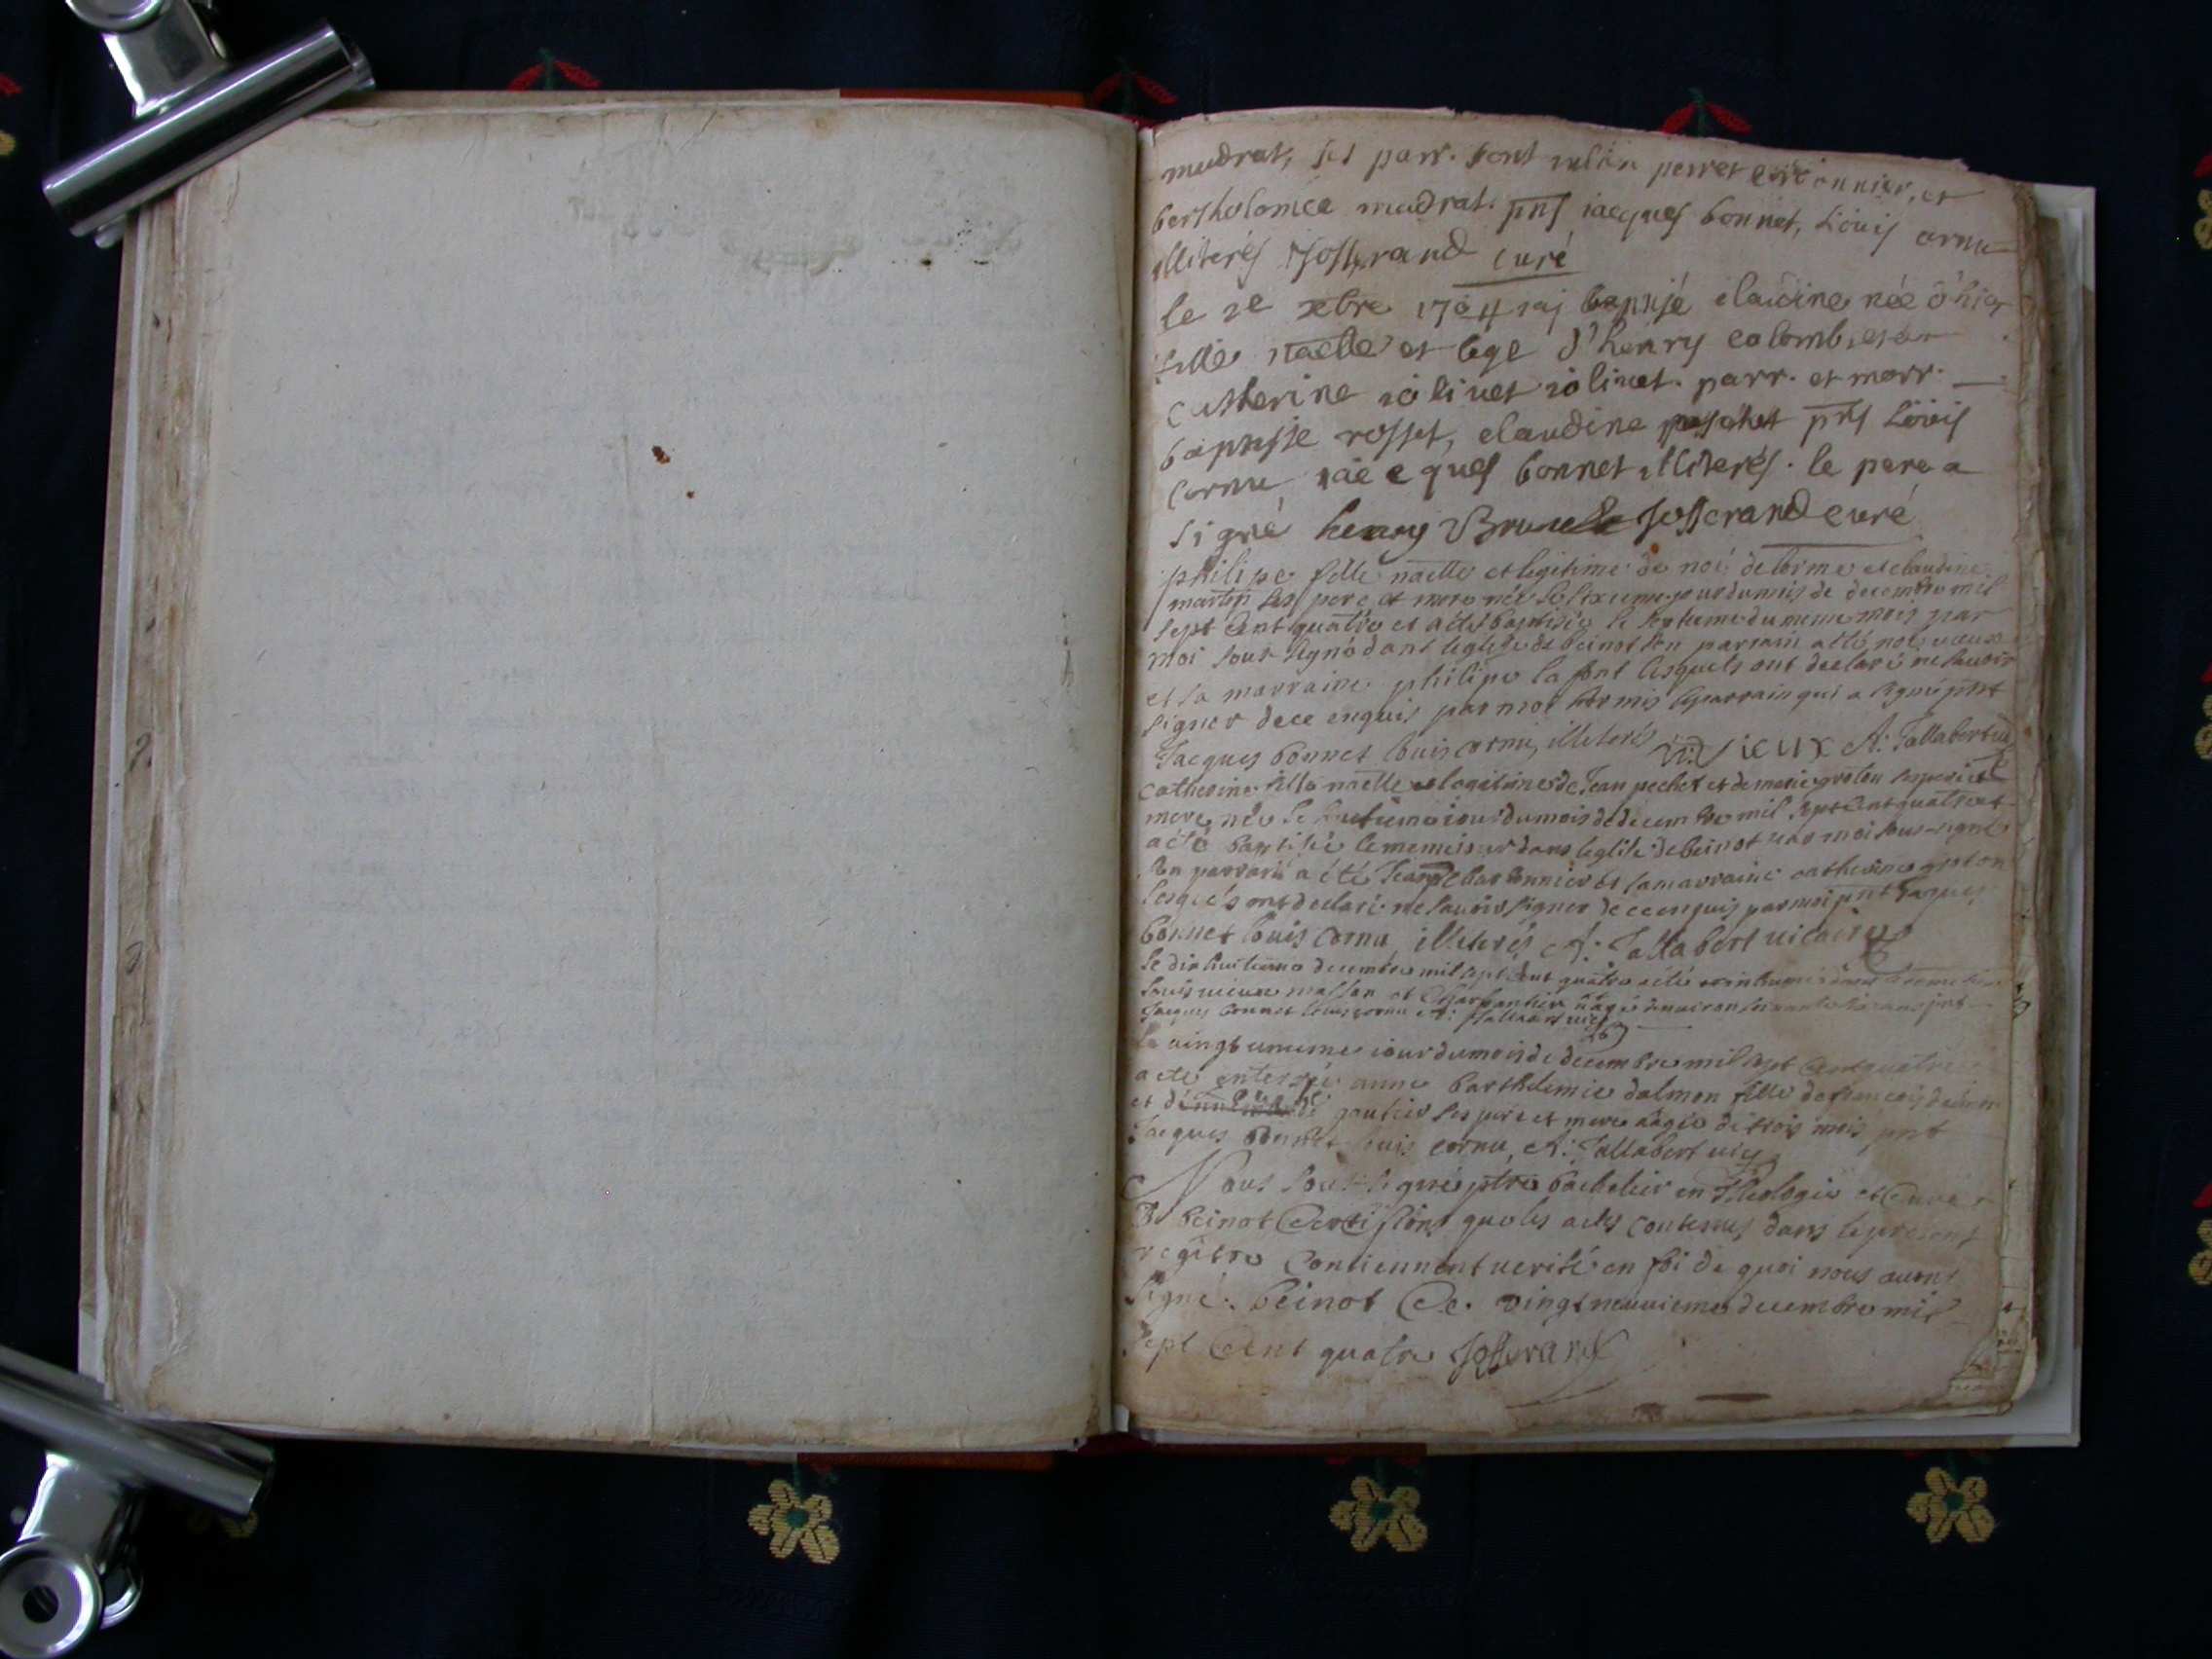 mudrat, ses parr. sont perret et
bertholomée mudrat. pnts iacques bonnet, Loüis cornu
illiterés Josserand curé
le 2e xbre 1704 iaj baptisé claudine née d'hier
fille naelle et lege d'henry colomb, et de
catherine iolivet iolivet. parr. et marr.
baptiste rosset, claudine pnts Loüis
cornu, iacques bonnet illiterés. le pere a
signé henry Josserand curé
philipe fille naelle et legitime de noé delorme et claudine
martin ses pere et mere née le sixieme jour du mois de decembre mil
sept cent quatre et a eté baptisée le septieme du meme mois par
moi sous signé dans leglise de beinot son parrain a eté noé vieux
et sa marraine philipe la font lesquels ont declaré ne sauoir
signer de ce enquis par moi hormis le parrain qui a signé pnt
Jacques bonnet louis cornu, illiterés n: Vieux A: Jallabert uic
catherine fille naelle et legitime de Jean pechet et de marie groton ses pere et
mere née le huitieme iour du mois de decembre mil sept cent quatre et
a eté baptisée le meme iour dans leglise de beinot par moi sous-signé
son parrain a été Jean charbonnier et sa marraine catherine groton
lesquels ont declaré ne sauoir signer de ce enquis par moi pnt Jaques
bonnet louis cornu illiterés A: Jallabert uicaire
le dix huitieme decembre mil sept cent quatre a été inhumé dans le cimetiere
louis vieux masson et charpentier aagé enuiron pnt
Jacques bonnet louis cornu A: Jallabert uic
le uingt unieme iour du mois de decembre mil sept cent quatre
a eté enterrée anne barthelemie dalmon fille de francois dalmon
et de gautier ses pere et mere aagée de trois mois pnt
Jacques bonnet louis cornu, A: Jallabert uic
Nous sous-signé ptre bachelier en Theologie et Curé
de beinot Certifions que les actes contenus dans le present
registre Contiennent uerité en foi de quoi nous auons
signé. beinot Ce. vingt neuuieme decembre mil
sept Cent quatre Josserand